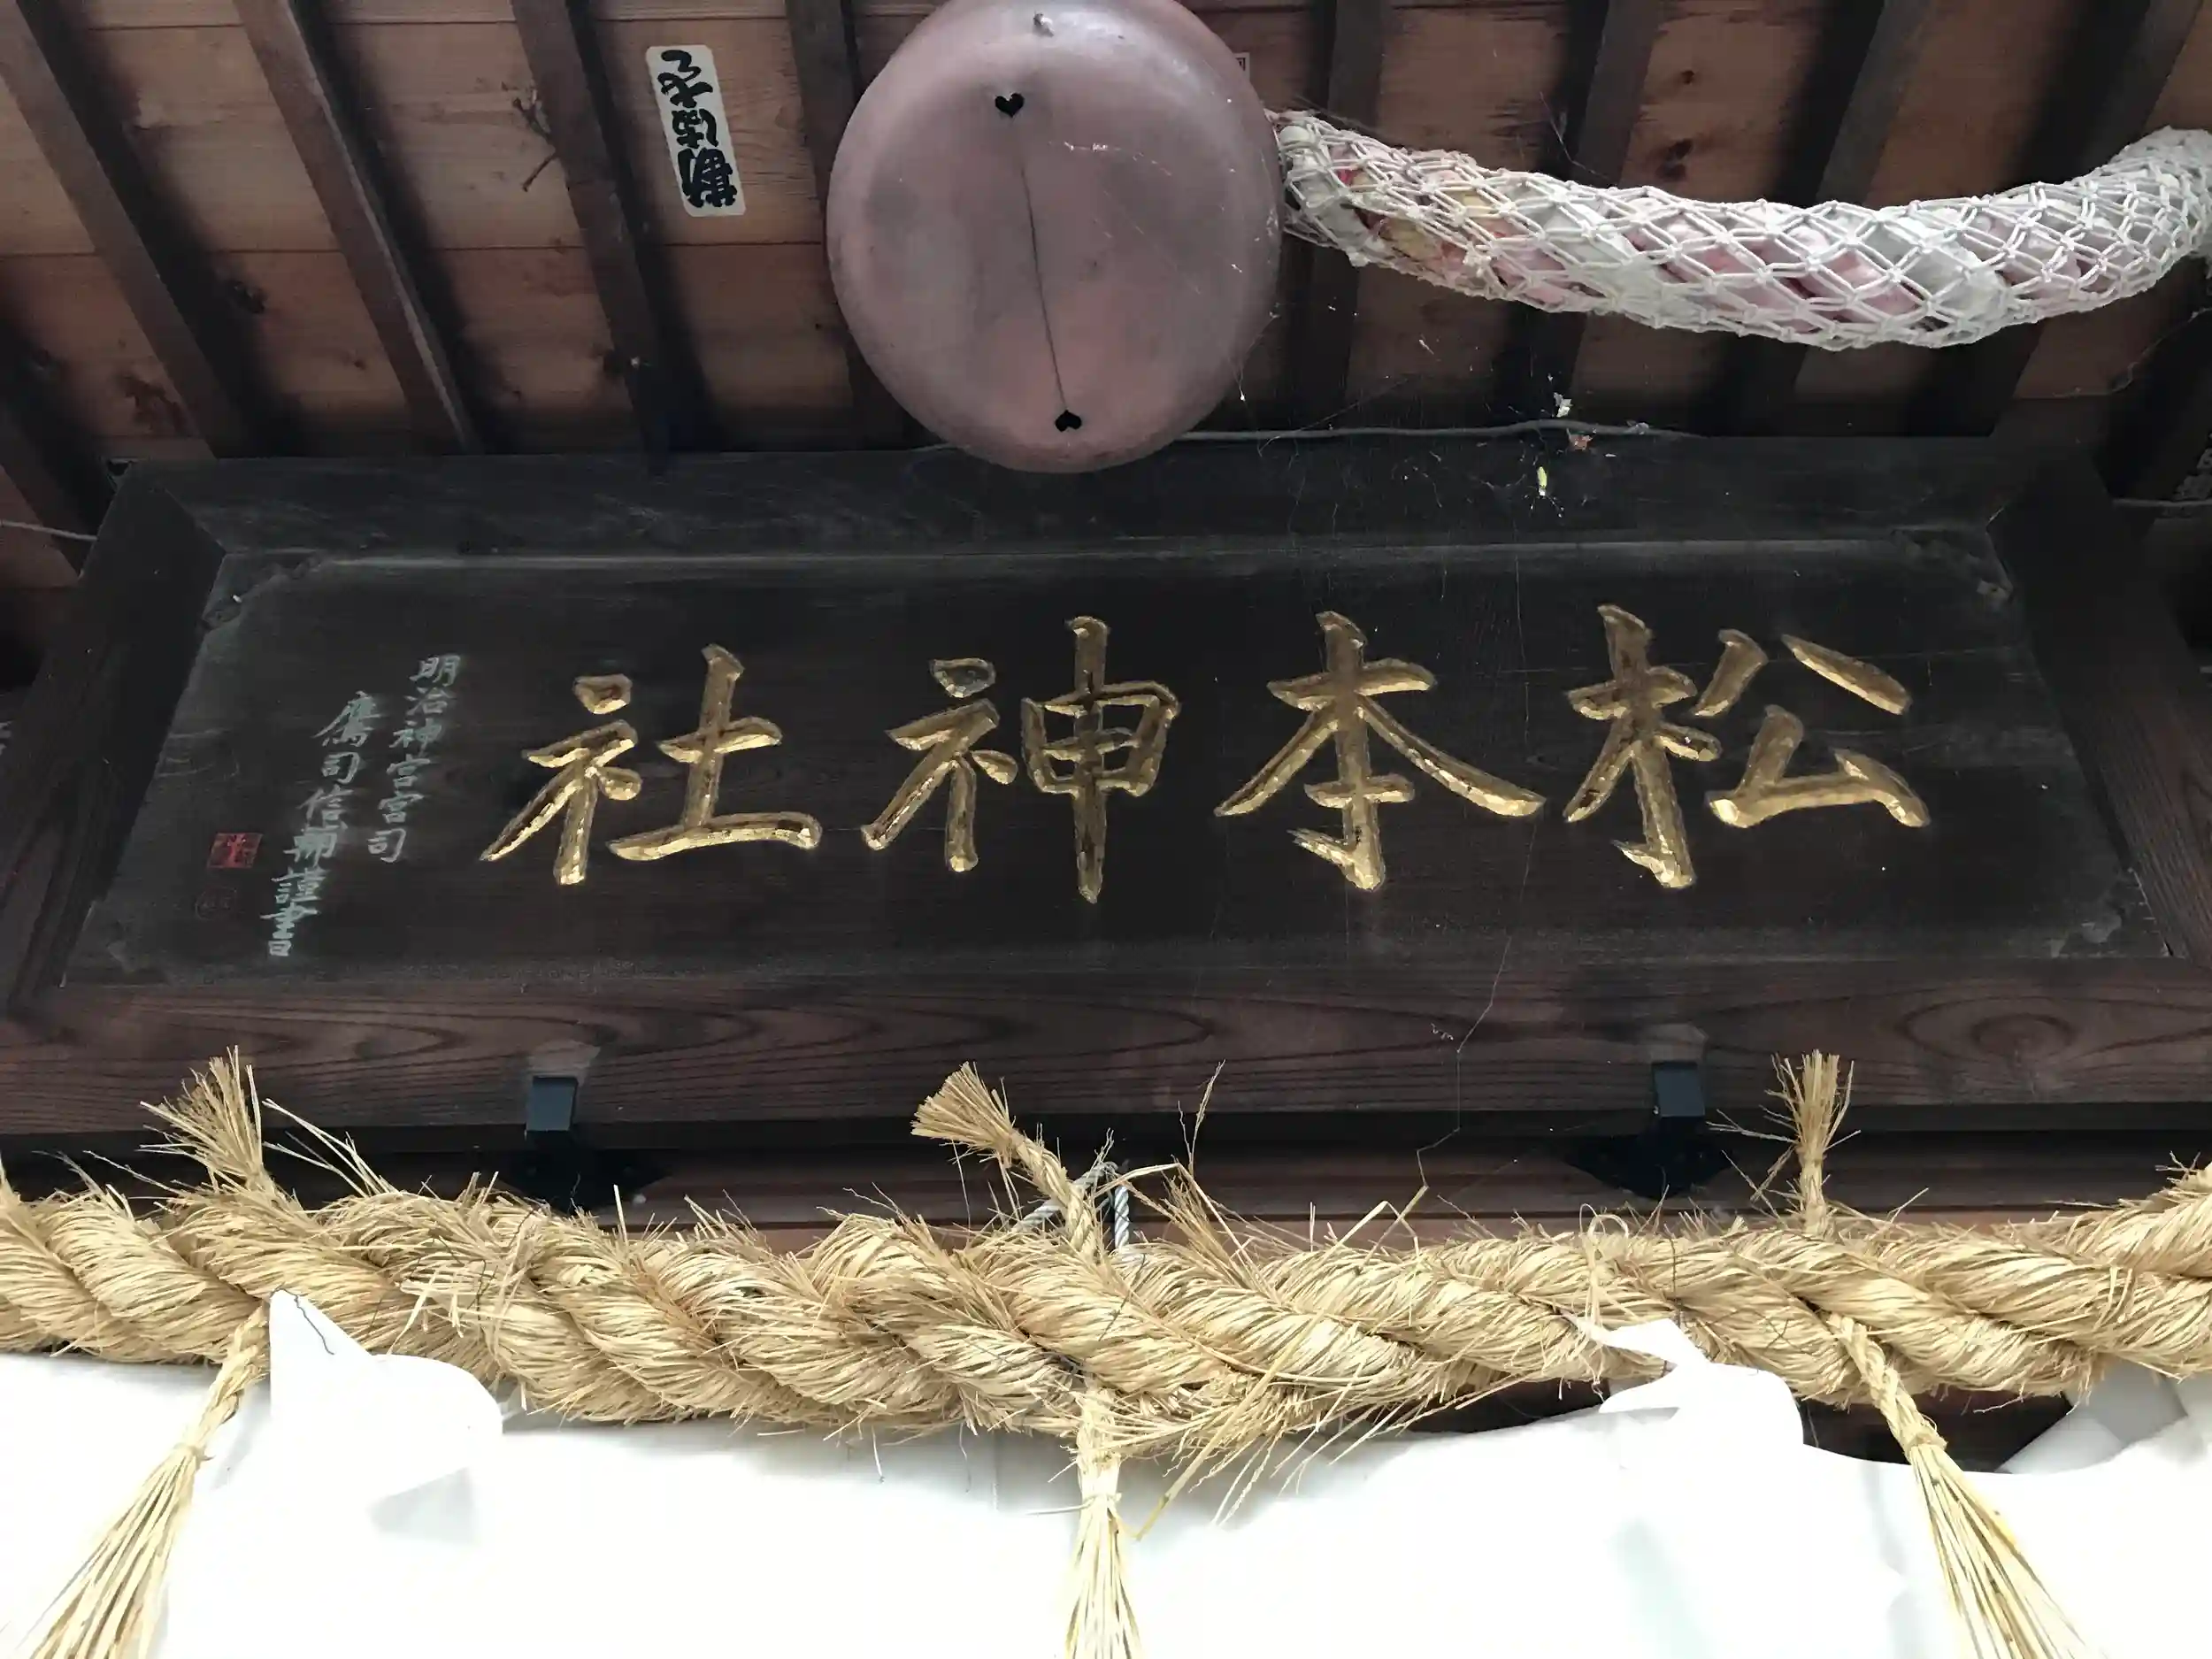 松本神社
明治神宮宮司
鷹司信輔謹書